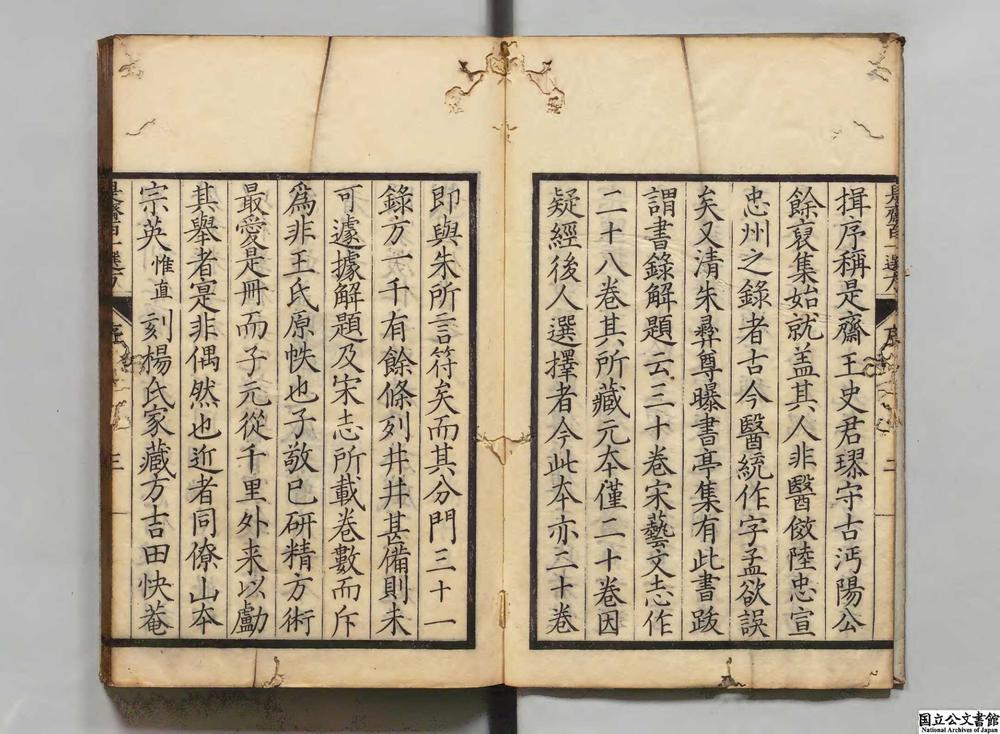 揖序稱是齋王史君璆守古沔陽公
餘裒集始就盖其人非醫倣陸忠宣
忠州之錄者古今醫統作字孟欲誤
矣又清朱彝尊曝書亭集有此書跋
謂書錄解題云三十卷宋藝文志作
二十八卷其所藏元本僅二十卷因
疑經後人選擇者今此本亦二十卷
即與朱所言符矣而其分門三十一
錄方一千有餘條列井井甚備則未
可遽據解題及宋志所載卷數而斥
爲非王氏原帙也子敬已研精方術
最愛是冊而子元從千里外来以勸
其舉者寔是非偶然也近者同僚山本
宗英惟直刻楊氏家藏方吉田快菴
是齋百一選方
序
二
是齋百一選方
序
三
国立公文書館
National Archives of Japan